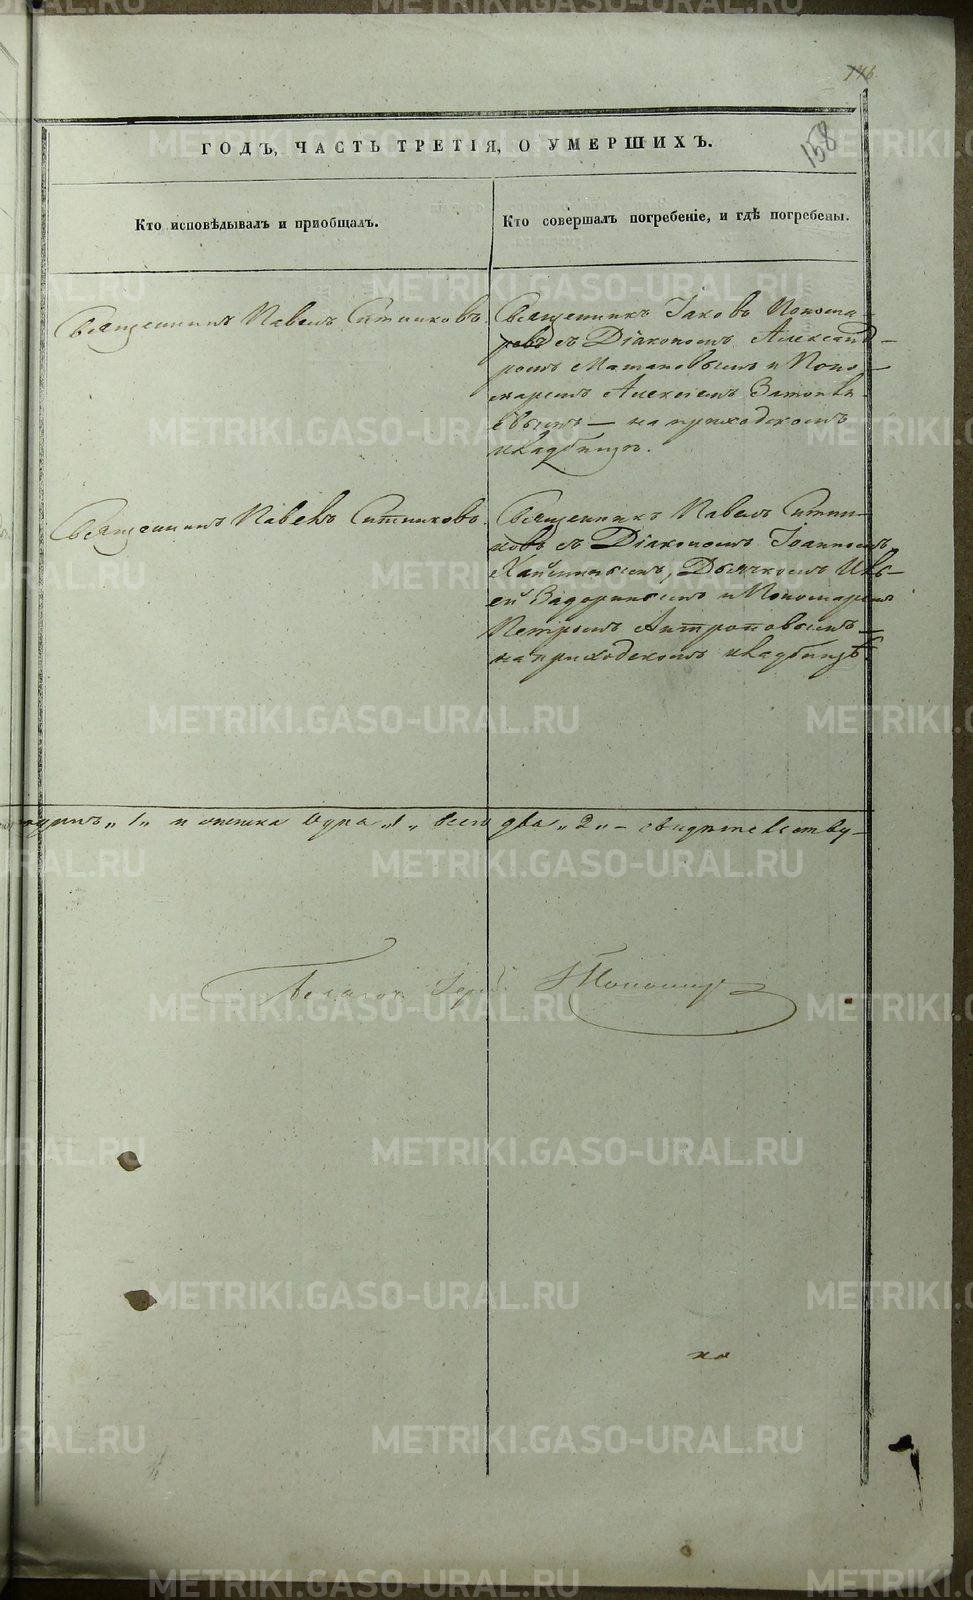 146
158
ГОДЪ, ЧАСТЬ ТРЕТІЯ, О УМЕРШИХЪ.
Кто исповѣдывалъ и пріобщалъ.
Кто совершалъ погребеніе, и гдѣ погребены.
Священникъ Павелъ Ситниковъ.
Священникъ Іаковъ Понома-
ревъ съ Діакономъ Александ-
ромъ и Поно-
маремъ Алексіемъ
на приходскомъ
кладбищѣ.
Священникъ Павелъ Ситниковъ.
Священникъ Павелъ Ситни-
ковъ съ Діакономъ Іоанномъ
Дьячкомъ
Задоринымъ и Пономаремъ
Петромъ Антроповымъ —
на приходскомъ кладбищѣ.
одинъ „1„ и женска одна „1„ всего два „2„ — свидѣтельству-
METRIKI.GASO-URAL.RU